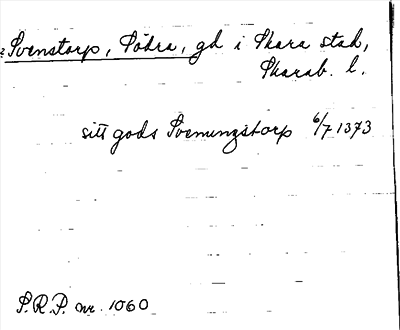 Svenstorp, Södra, gd i Skara stad,
Skarab. l.
sitt gods Svenungstorp 6/7 1373
S.R.P. nr. 1060